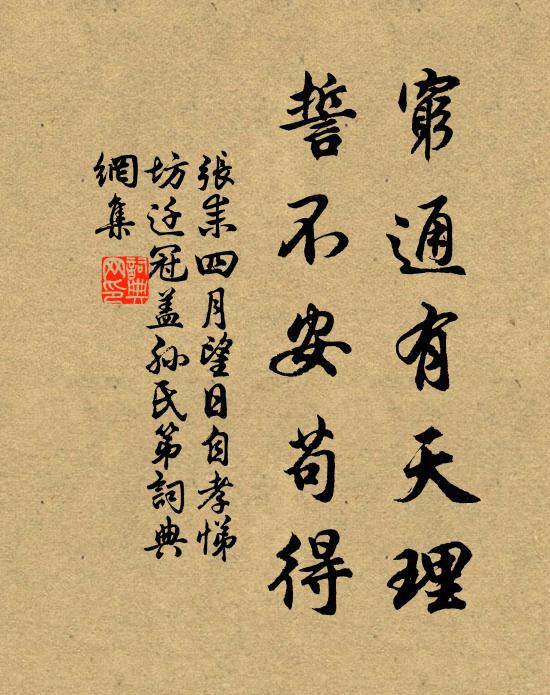 窮通有天理
誓不安苟得
張耒四月望日自孝悌
坊迁冠盖孙氏第詞典
網集
詞典
网印